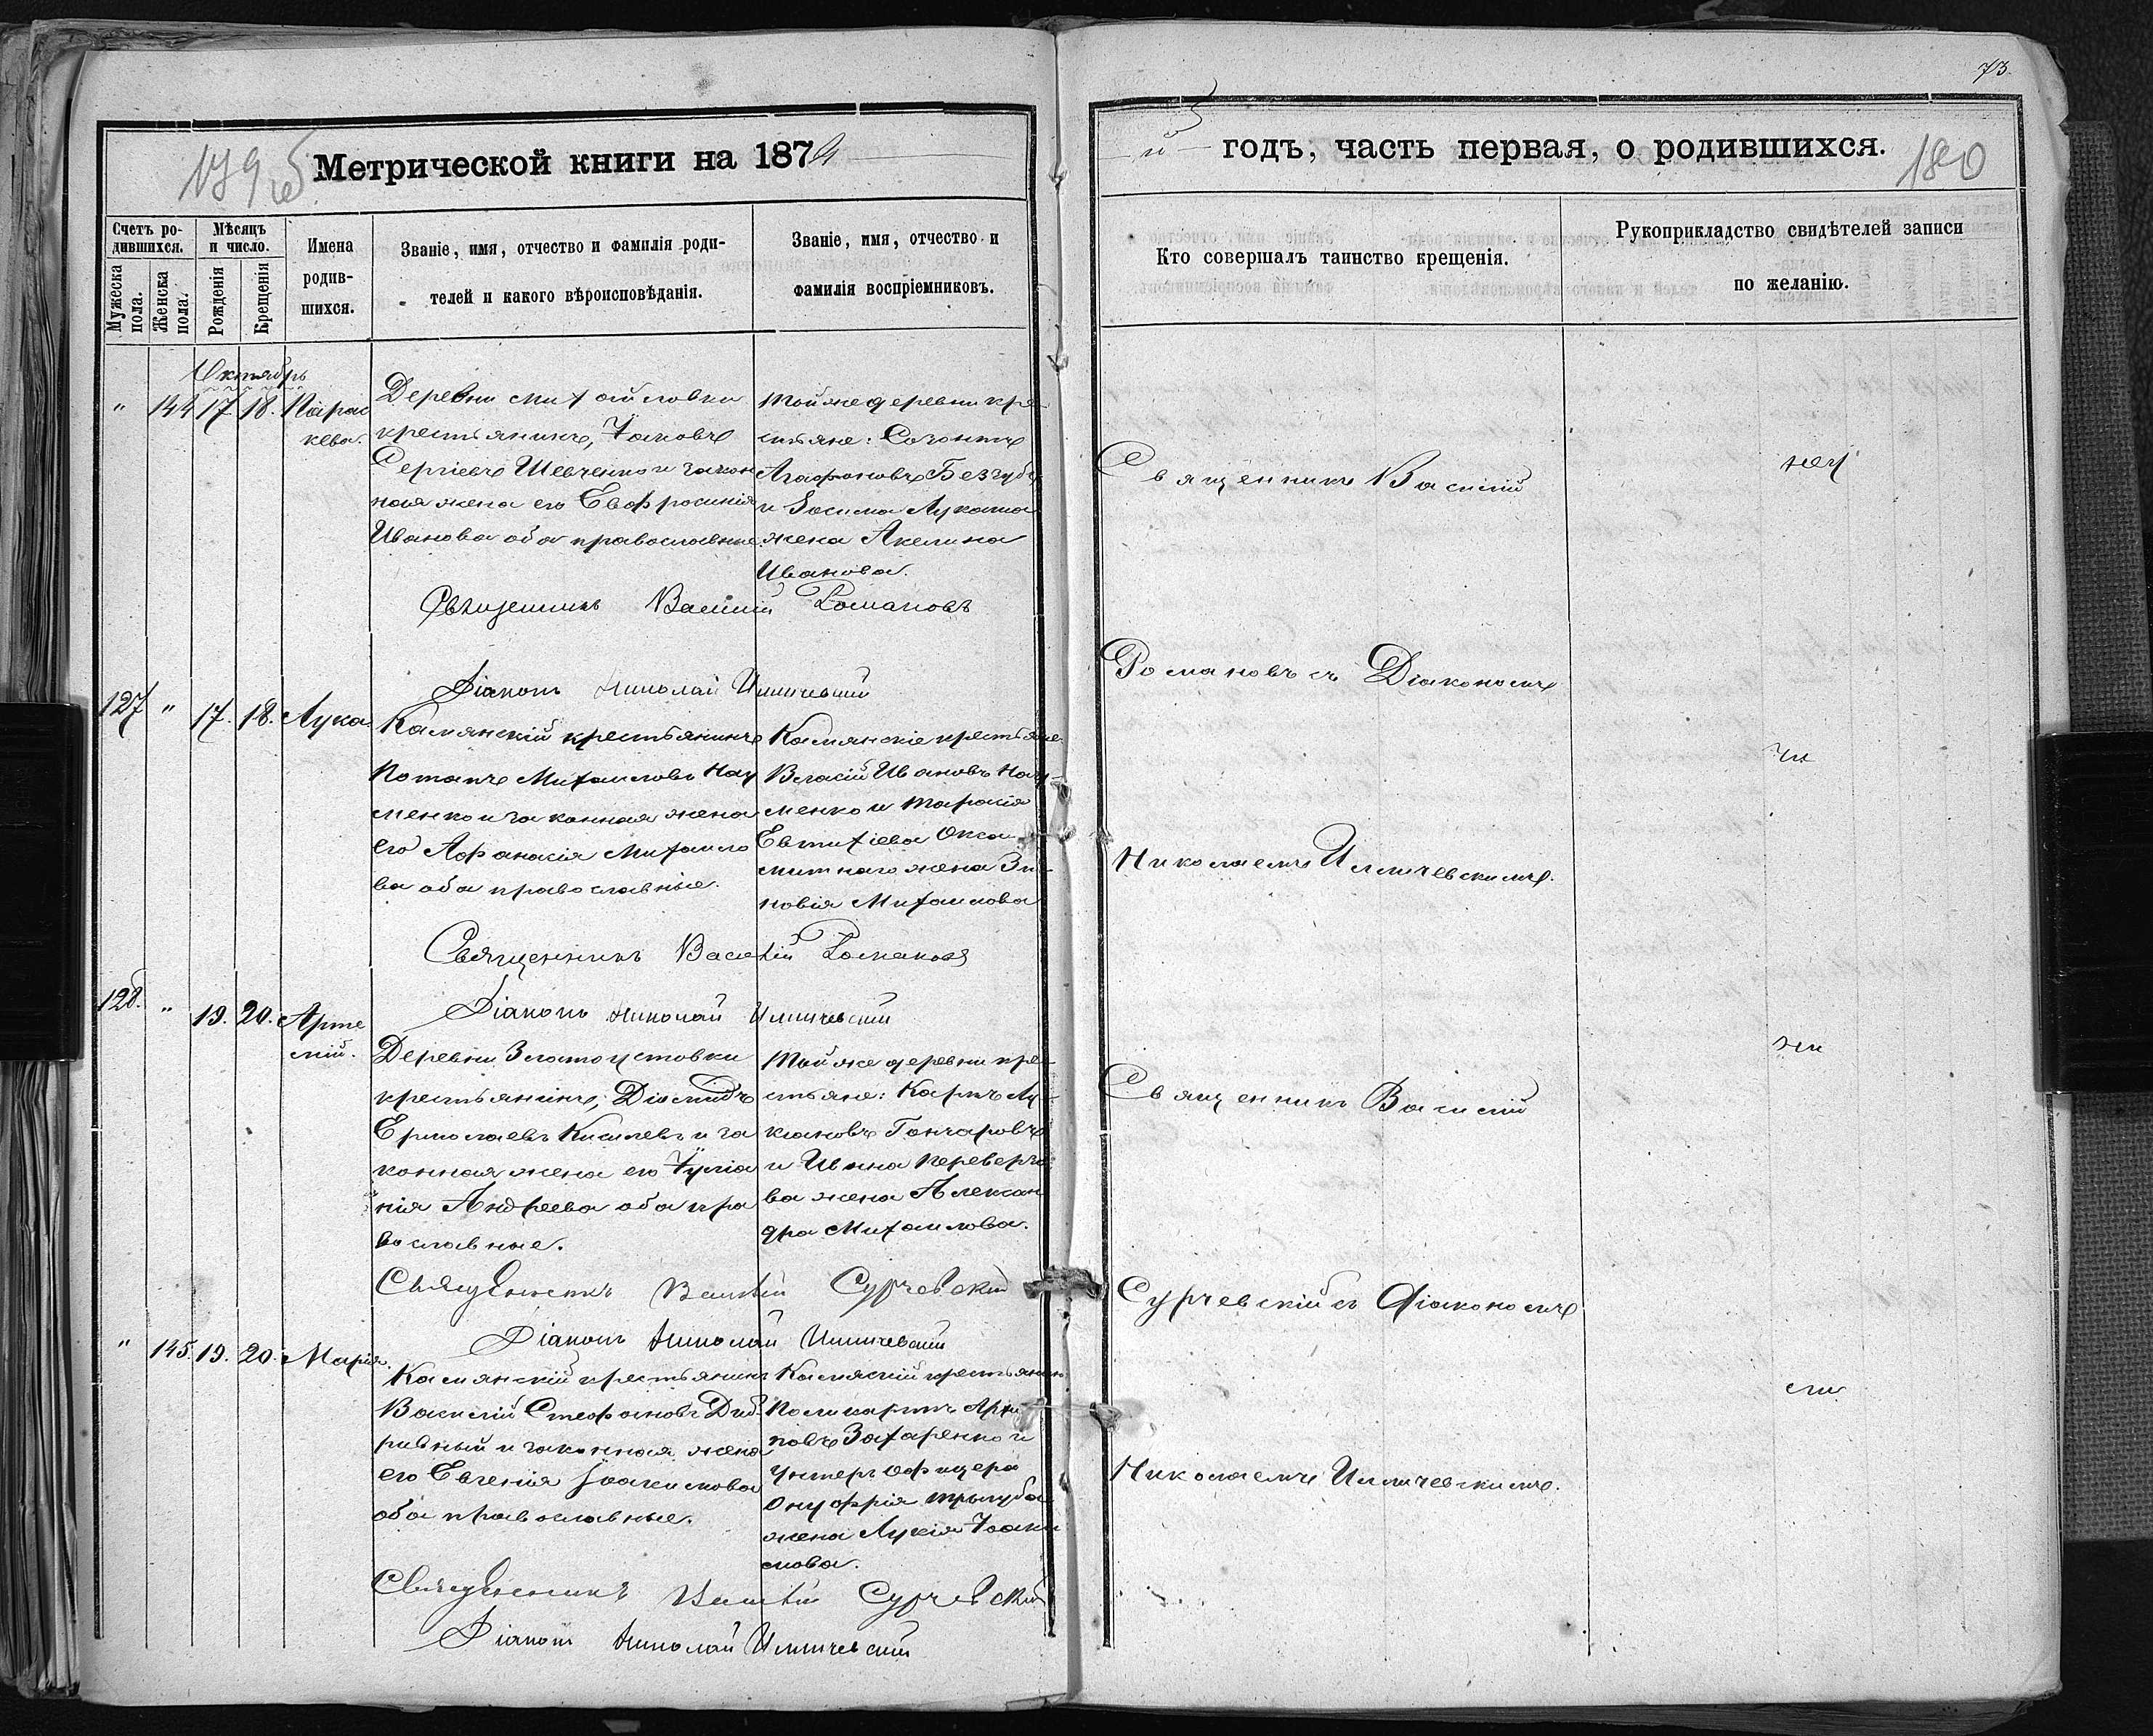 73.
179 об
Метрической книги на 1874
й годъ, часть первая, о родившихся.
180
Счетъ ро-
дившихся.
Мужеска
пола.
Женска
пола.
Мѣсяцъ
и число.
Рожденія
Крещенія
Имена
родив-
шихся.
Званіе, имя, отчество и фамилія роди-
телей и какого вѣроисповѣданія.
Званіе, имя, отчество и
фамилія воспріемниковъ.
Кто совершалъ таинство крещенія.
Рукоприкладство свидѣтелей записи
по желанію.
Октябрь
" 144 17 18. Парас
кева.
Деревни Михайловки
крестьянинъ, Іаковъ
Сергіевъ Шевченко и закон
ная жена его Евфросинія
Иванова оба православные.
Той же деревни кре-
стьяне: Созонтъ
Агафоновъ Беззубъ
и Зосима Лукаша
жена Акелина
Иванова.
Священникъ Василій Романовъ
Діаконъ Николай Илличевскій
127 " 17. 18. Лука.
Камянскій крестьянинъ
Потапъ Михаиловъ Нау
менко и законная жена
его Афанасія Михаило
ва оба православные.
Камянскіе крестьяне
Власій Ивановъ Нау-
менко и Тарасія
Евтихіева Окса-
митнаго жена Зи-
новія Михаилова
Священникъ Василій Романовъ
Діаконъ Николай Илличевскій
128. " 19. 20. Арте
мій.
Деревни Златоустовки
крестьянинъ, Діомидъ
Ермолаевъ Киселевъ и за
конная жена его Іуліа
нія Андреева оба пра
вославные.
Той же деревни кре-
стьяне: Карпъ Лу-
кіановъ Гончаровъ
и Ивана Переверзе
ва жена Алексан
дра Михаилова.
Священникъ Василій Сурчевскій
Діаконъ Николай Илличевскій
" 145. 19. 20. Марія.
Камянскій крестьянинъ
Василій Стефановъ Диб-
ривный и законная жена
его Евгенія Іоакимова
оба православные.
Камяскій крестьянин
Поликарпъ Архи
повъ Захаренко и
унтеръ офицера
Онуфрія Трыгуба
жена Лукія Іоаки
мова.
Священникъ Василій Сурчевскій
Діаконъ Николай Илличевскій
Священникъ Василій
Романовъ съ Діакономъ
Николаемъ Илличевскимъ.
Священникъ Василій
Сурчевскій съ Діакономъ
Николаемъ Илличевскимъ.